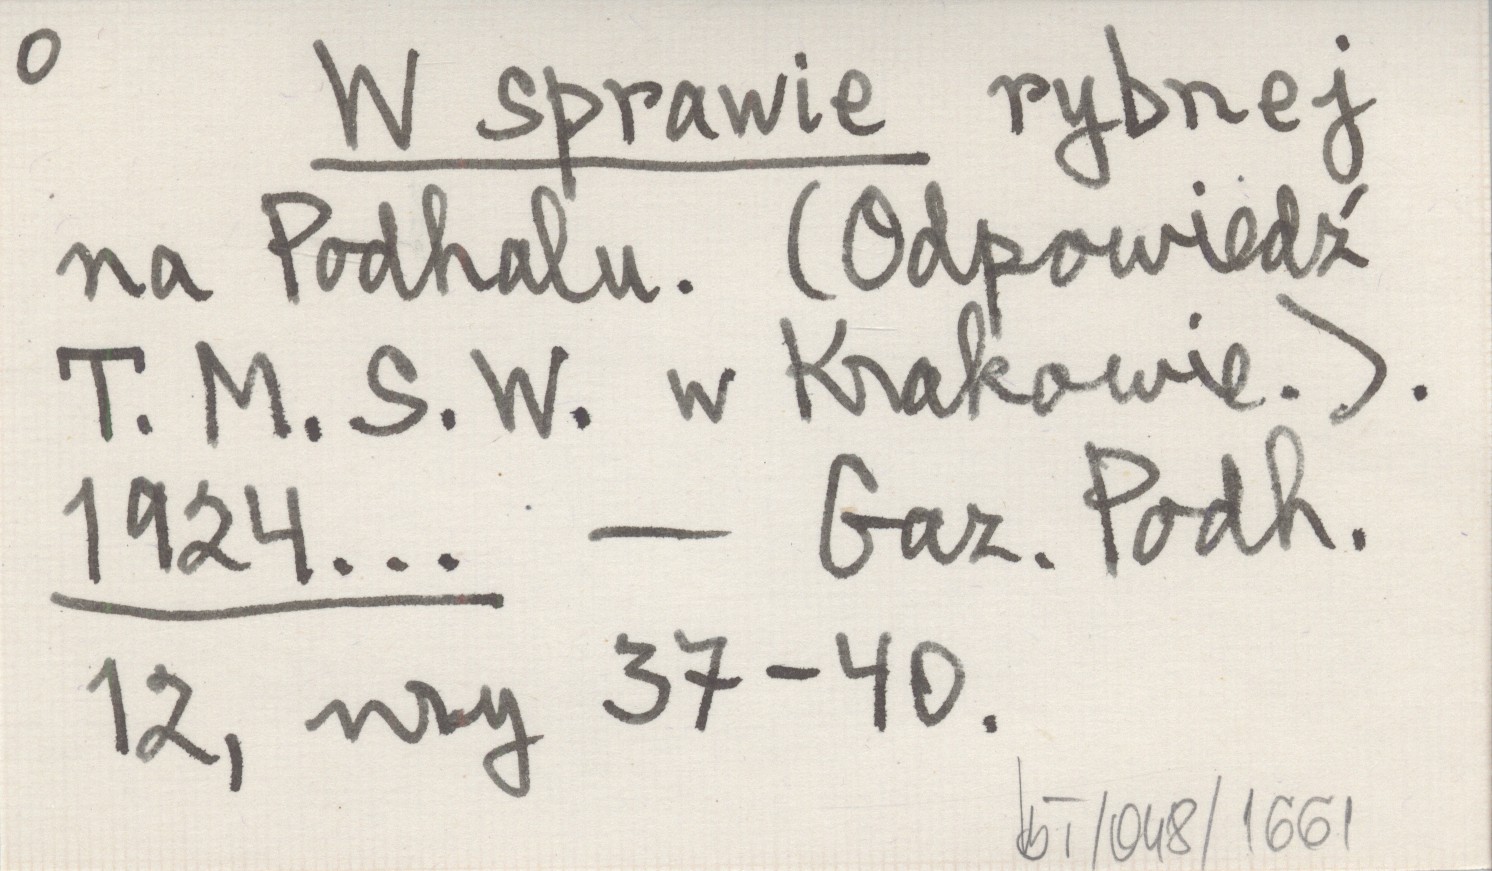 O
W sprawie rybnej
na Podhalu. (Odpowiedź
T. M. S. W. w Krakowie.).
1924... — Gaz. Podh.
12, nry 37-40.
bT/048/1661